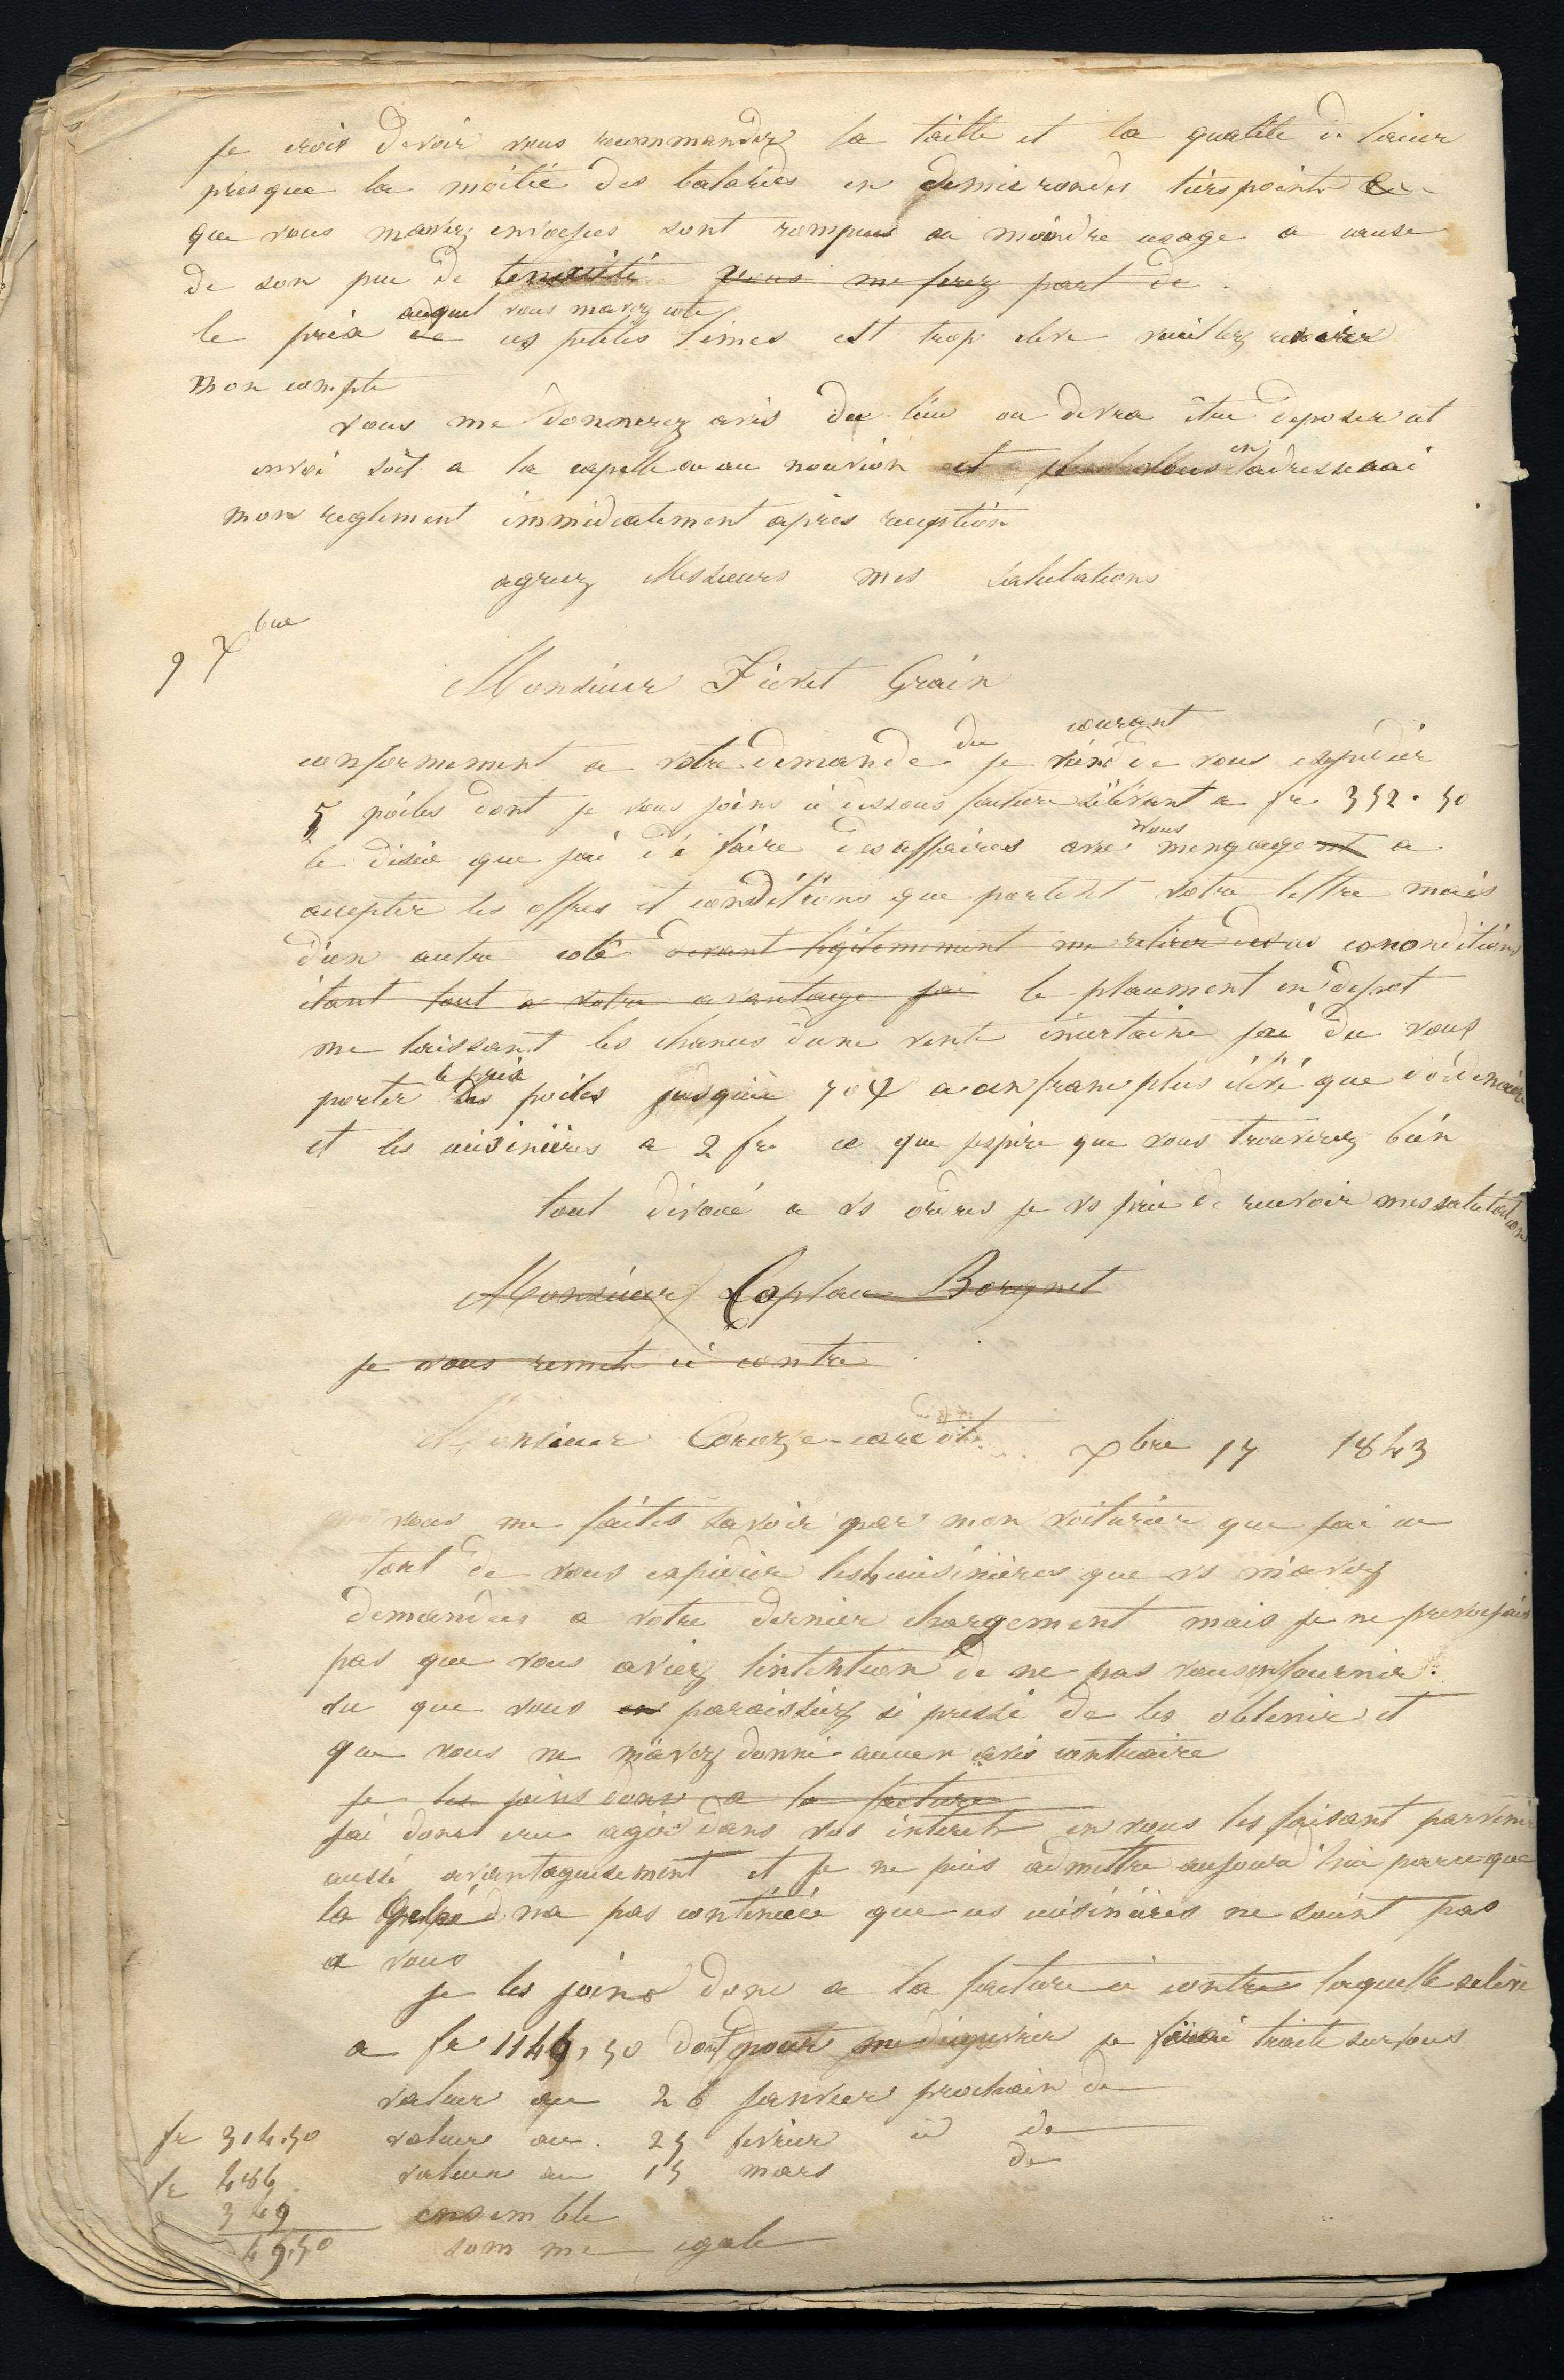 je crois devoir vous recommander la taille et la qualité de lacier
presque la moitié des batardes en demie rondes tiers point &c
que vous mavez envoyées sont rompues au moindre usage a cause
de son peu de tenacité vous me ferez part de
auquel vous mavez coté
le prix de ces petites limes est trop elevé veuillez revoir
mon compte
vous me donnerez avis du lieu ou devra être deposer cet
envoi soit a la capelle ou au nouvion et je vous en adresserai
mon reglement immediatement après reception
agreez Messieurs mes salutations
9 Xbre
Monsieur Fievet Grain
conformement a votre demande du courant je viens de vous expedier
5 poëles dont je vous joins ci dessous facture s'élévant a fr 352.50
le désir que j'ai de faire des affaires avec vous mengage a
accepter les offres et conditions que portent votre lettre mais
d'un autre coté me retirer conditions
étant tout a votre avantage jai le placement en depot
me laissant les chances dune vente incertaine jai du vous
porter le prix des poëles jusquà a un franc plus élévé que dordenaire
et les cuisinières a 2 fr ce que jespère que vous trouverez bien
tout dévoué a vs ordres je vs prie de recevoir mes salutations
Monsieur Borgnet
je vous remet ci contre
Monsieur
Xbre 17 1843
vous me faites savoir par mon voiturier que jai eu
tort de vous expédier les 4 cuisinières que vs m'avez
demandées a votre dernier chargement mais je ne prevoyais
pas que vous aviez lintention de ne pas vous en fournir
vu que vous en paraissiez si pressé de les obtenir et
que vous ne m'avez donné aucun avis contraire
je les joins donc a la facture
jai donc cru agir dans vos interets en vous les faisant parvenir
aussi avantageusement et je ne puis admettre aujourd'hui parceque
la gelée na pas continuée que ces cuisinières ne soient pas
a vous
je les joins donc a la facture ci contre laquelle selève
a fr 1149,50 dont pour je ferai traite sur vous
valeur au 26 janvier prochain de
fr 314.50 valeur au 25 fevrier id de
fr 486 valeur au 15 mars de
349 ensemble
49.50 somme egale